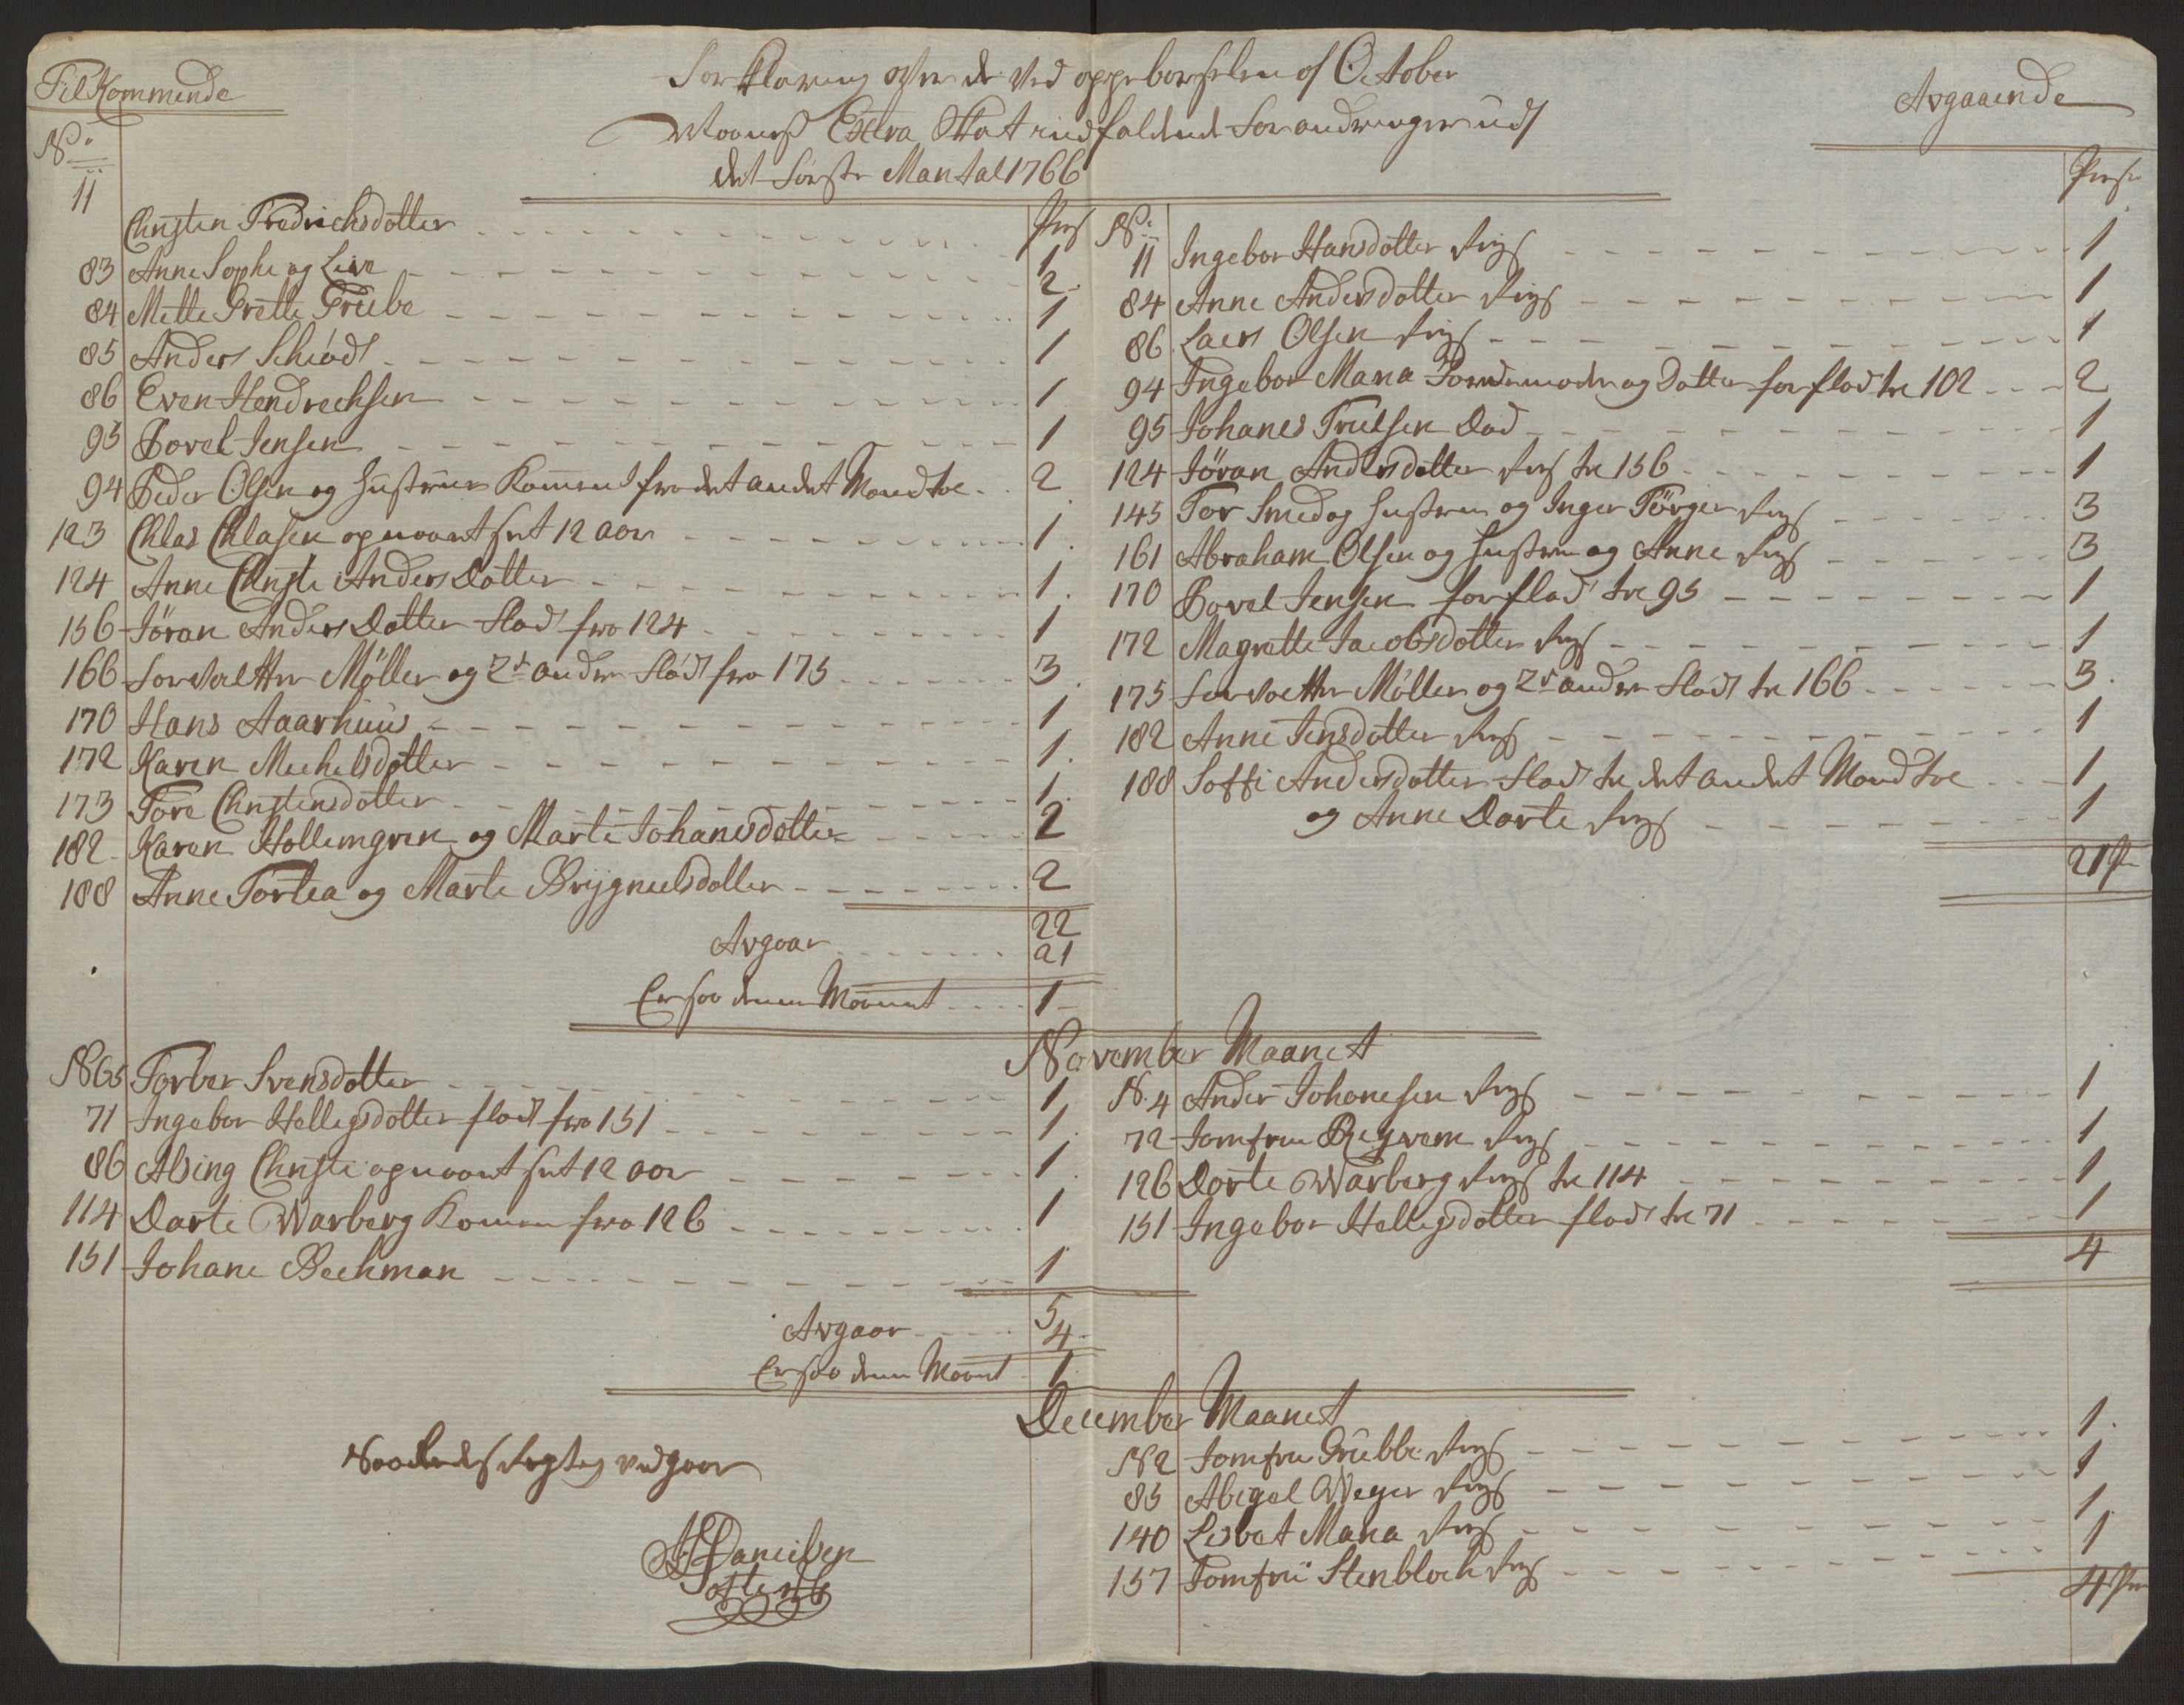 Forklaring over de ved oppebørselen of October
Maanets Extra Skat indfaldende forandringer udi
det første Mantal 1766
TilKommende
No
Pers
11 Christen Fredrichsdotter 1
83 Anne Sophe og Live 2
84 Mette Grette Grube 1
85 Anders Schiødt 1
86 Even Hendrechsen 1
95 Povel Jensen 1
94 Peder Olsen og Hustrue Kommend fra det andet Mandtal 2
123 Chlas Chlasen opnaaet sit 12 aar 1
124 Anne Christi AndersDotter 1
156 Jöran AndersDotter flød fra 124 1
166 Forvalter Møller og 2de andre flødt fra 175 3
170 Hans Aaarhuus 1
172 Karen Michelsdotter 1
173 Tore Christensdotter 1
182 Karen Hollemgren og Marte Johanesdotter 2
188 Anne Tortea og Marte Brygnielsdotter 2
22
Avgaar 21
Er saa denne Maanet 1
Avgaaende
Pers
No
11 Ingebor Hansdotter reist 1
84 Anne Andersdotter reist 1
86 Laers Olsen reist 1
94 Ingebor Maria og Datter forflød til 102 2
95 Johanes Truelsen Død 1
124 Jöran Andersdotter reist til 156 1
145 Tor Smed og Hustrue og Inger Törger reist 3
161 Abraham Olsen og Hustrue og Anne reist 3
170 Povel Jensen forflød til 95 1
172 Magrette Jacobsdotter reist 1
175 Forvalter Møller og 2de andre flødt til 166 3
182 Anne Jensdotter reist 1
188 Soffi Andersdotter flød til det andet Mandtal 1
og Anne Dorte reist 1
21 Ps
November Maanet
No 65 Torber Svensdotter 1
71 Ingebor Hellegsdotter flød fra 151 1
86 Alsing Christi opnaaet sit 12 aar 1
114 Dorte Warberg Komen fra 126 1
151 Johane Bechman 1
5
Avgaar 4
Er saa denne Maanet 1
N. 4 Ander Johanesen reist 1
72 Jomfrue Regvem reist 1
126 Dorte Warberg reist til 114 1
151 Ingebor Hellegsdotter flød til 71 1
4
December Maanet
N 2 Jomfrue Grubbe reist 1
85 Abigel Weyer reist 1
140 Lisbet Maria reist 1
157 Jomfru Stenbloch reist 1
4 Ps
Saaledes rigtig vedgaar
Danielsen